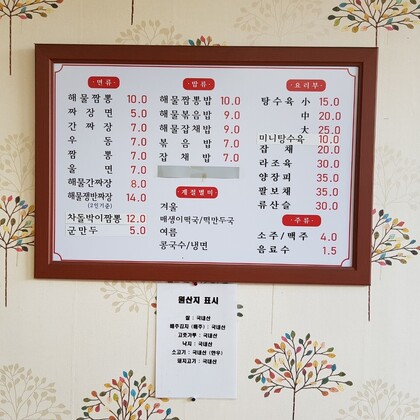 면 류
해물짬뽕 10.0
짜 장 면 5.0
간 짜 장 7.0
우 동 7.0
짬 뽕 7.0
울 면 7.0
해물간짜장 8.0
해물쟁반짜장 14.0
(2인기준)
차돌박이짬뽕 12.0
군 만 두 5.0
밥 류
해물짬뽕밥 10.0
해물볶음밥 9.0
해물잡채밥 9.0
볶 음 밥 7.0
잡 채 밥 7.0
계절별미
겨울
매생이떡국/떡만두국
여름
콩국수/냉면
요 리 부
탕 수 육 小 15.0
中 20.0
大 25.0
미니탕수육 10.0
잡 채 20.0
라 조 육 30.0
양 장 피 35.0
팔 보 채 35.0
류 산 슬 30.0
주 류
소주/맥주 4.0
음 료 수 1.5
원산지 표시
쌀 : 국내산
배추김치 (배추) : 국내산
고춧가루 : 국내산
낙지 : 국내산
소고기 : 국내산 (한우)
돼지고기 : 국내산